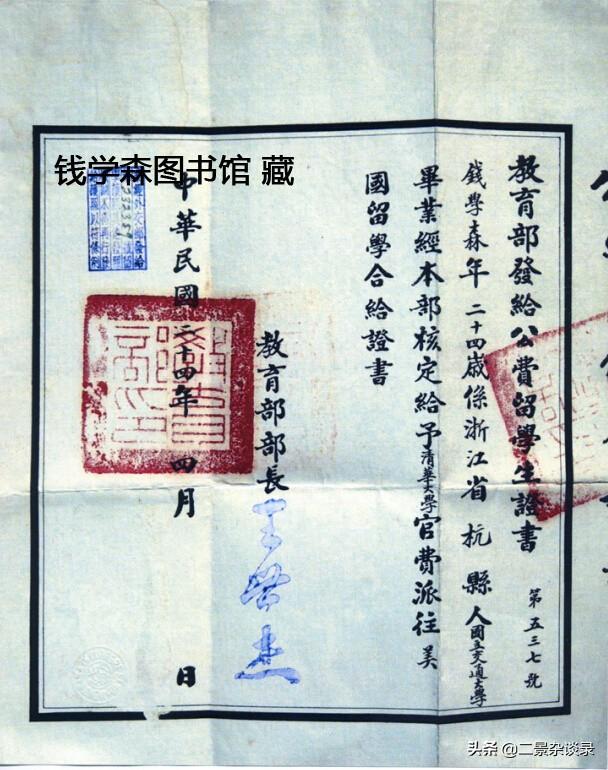 钱学森图书馆 藏
教育部發給公費留學生證書
第五三七號
錢學森年二十四歲係浙江省杭縣人國立交通大學
畢業經本部核定給予清華大學官費派往美
國留學合給證書
教育部部長王世杰
中華民國二十四年四月 日
头条 @二景杂谈录